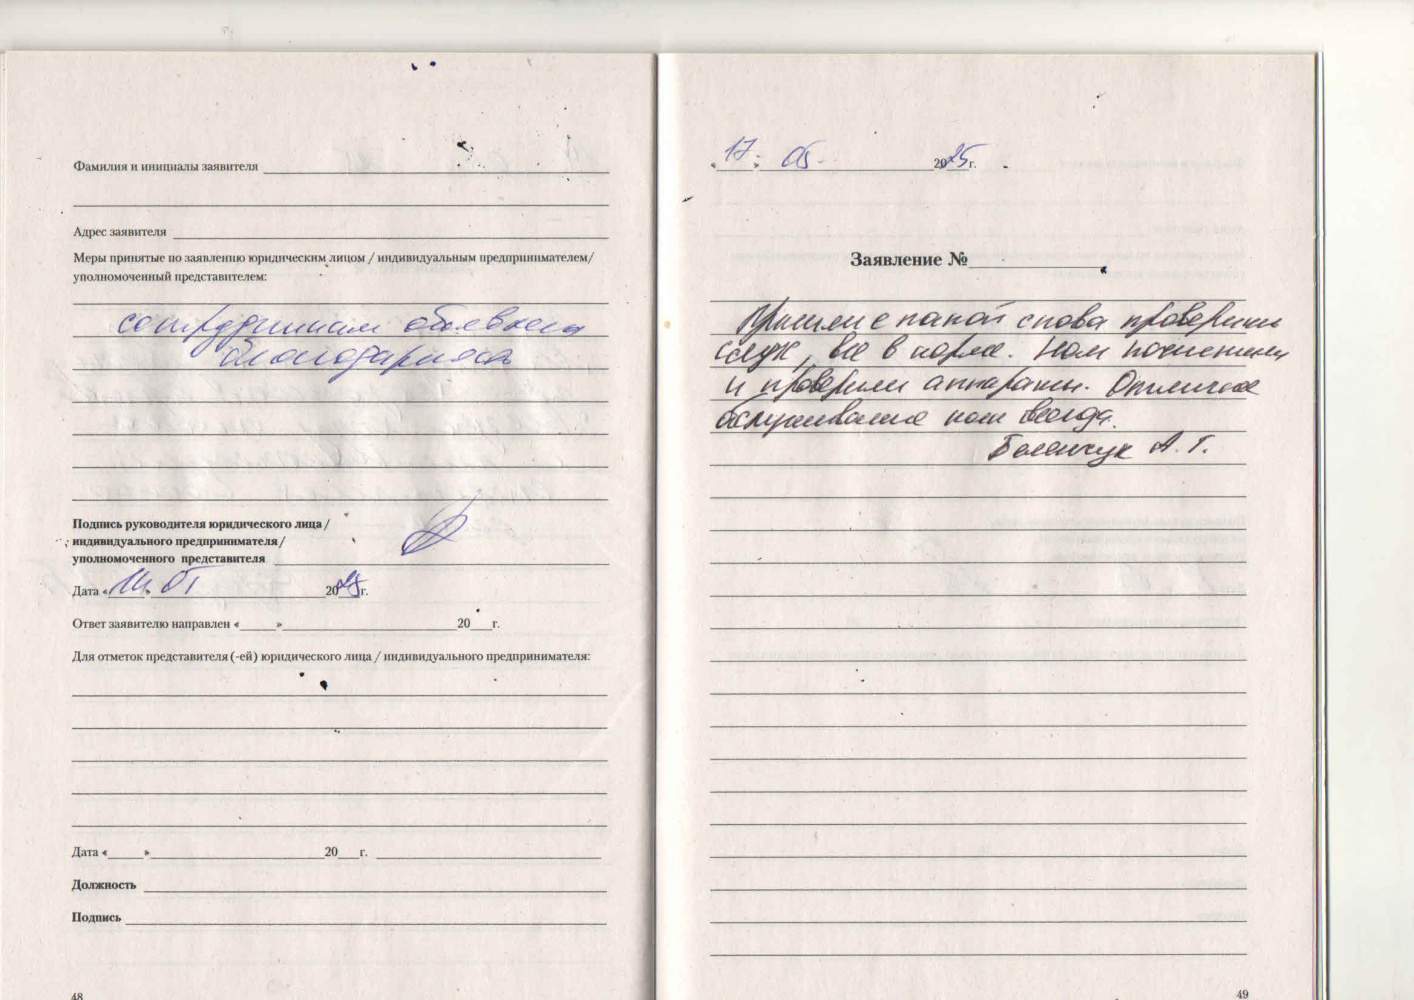 Фамилия и инициалы заявителя
Адрес заявителя
Меры принятые по заявлению юридическим лицом / индивидуальным предпринимателем/
уполномоченный представителем:
сотрудникам объявлена
благодарность
Подпись руководителя юридического лица /
индивидуального предпринимателя/
уполномоченного представителя
Дата « » 05 2025 г.
Ответ заявителю направлен « » 20 г.
Для отметок представителя (-ей) юридического лица / индивидуального предпринимателя:
Дата « » 20 г.
Должность
Подпись
48
«17» 05 2025г.
Заявление №
Пришли с папой снова проверили
слух, все в норме. Нам почистили
и проверили аппараты. Отличное
обслуживание как всегда.
А. Г.
49